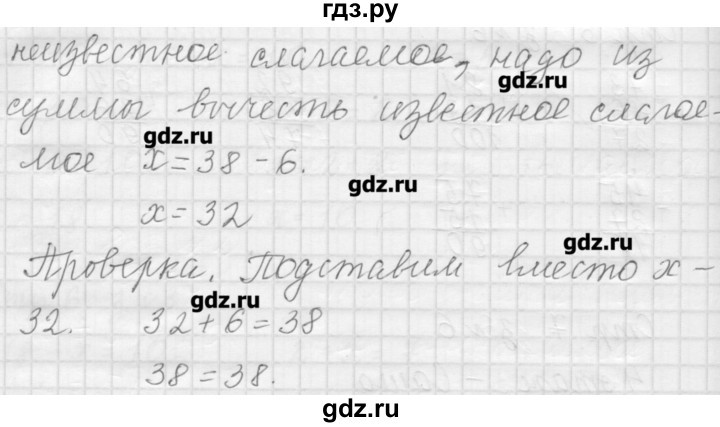 гдз.ру
неизвестное слагаемое, надо из
gdz.ru
суммы вычесть известное слагае-
gdz.ru
мое x = 38 - 6.
gdz.ru
x = 32
gdz.ru
Проверка. Подставим вместо x -
gdz.ru
32. 32 + 6 = 38
38 = 38.
gdz.ru